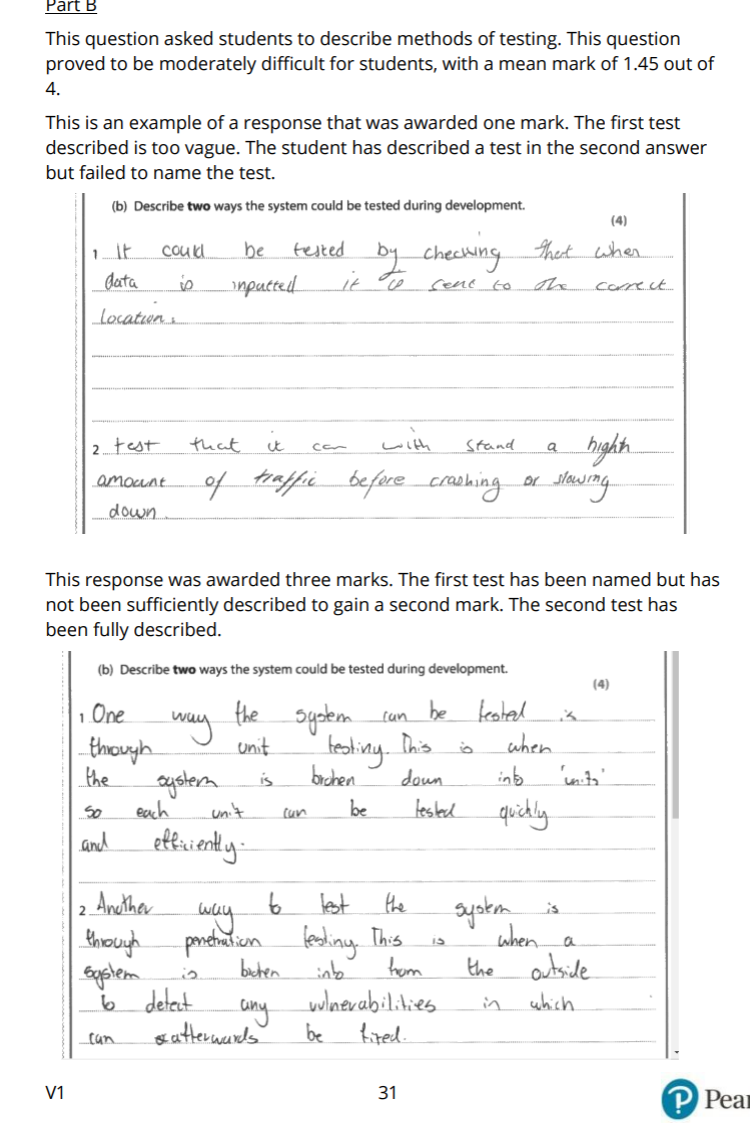 Part B
This question asked students to describe methods of testing. This question
proved to be moderately difficult for students, with a mean mark of 1.45 out of
4.
This is an example of a response that was awarded one mark. The first test
described is too vague. The student has described a test in the second answer
but failed to name the test.
(b) Describe two ways the system could be tested during development.
(4)
1 It could be tested by checking that when
data is inputted it is sent to the correct
location.
2 test that it can with stand a highh
amount of traffic before crashing or slowing
down.
This response was awarded three marks. The first test has been named but has
not been sufficiently described to gain a second mark. The second test has
been fully described.
(b) Describe two ways the system could be tested during development.
(4)
1 One way the system can be tested is
through unit testing. This is when
the system is broken down into 'units'
so each unit can be tested quickly
and efficiently.
2 Another way to test the system is
through penetration testing. This is when a
system is broken into from the outside
to detect any vulnerabilities in which
can afterwards be fixed.
V1
31
Pear